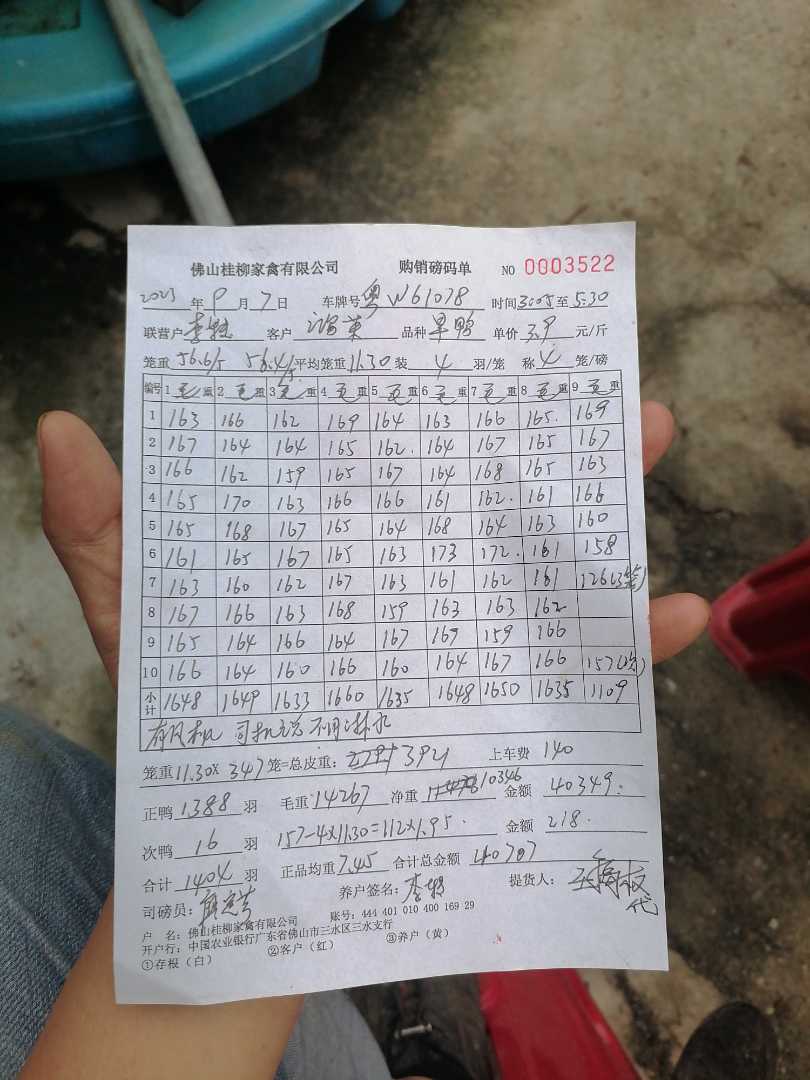 佛山桂柳家禽有限公司 购销磅码单 NO 0003522
2023 年 9 月 7 日 车牌号 粤W61078 时间 3:05 至 5:30
联营户 李 客户 品种 旱鸭 单价 3.9 元/斤
笼重 56.6/5 56.4/5 平均笼重 11.30 装 4 羽/笼 称 4 笼/磅
编号 1 毛重 2 毛重 3 毛重 4 毛重 5 毛重 6 毛重 7 毛重 8 毛重 9 毛重
1 163 166 162 169 164 163 166 165. 169
2 167 164 164 165 162. 164 167 165 167
3 166 162 159 165 167 164 168 165 163
4 165 170 163 166 166 161 162. 161 166
5 165 168 167 165 164 168 164 163 160
6 161 165 167 165 163 173 172. 161 158
7 163 160 162 167 163 161 162 161 126(3笼)
8 167 166 163 168 159 163 163 162
9 165 164 166 164 167 169 159 166
10 166 164 160 166 160 164 167 166 157(次)
小计 1648 1649 1633 1660 1635 1648 1650 1635 1109
有风机 司机说不用淋水
笼重 11.30 X 347 笼=总皮重: 3921 上车费 140
正鸭 1388 羽 毛重 14267 净重 10346 金额 40349.
次鸭 16 羽 157-4×11.30=112×1.95. 金额 218.
合计 1404 羽 正品均重 7.45 合计总金额 40707
司磅员: 养户签名: 李 提货人: 代
户 名: 佛山桂柳家禽有限公司 账号: 444 401 010 400 169 29
开户行: 中国农业银行广东省佛山市三水区三水支行
①存根(白) ②客户(红) ③养户(黄)